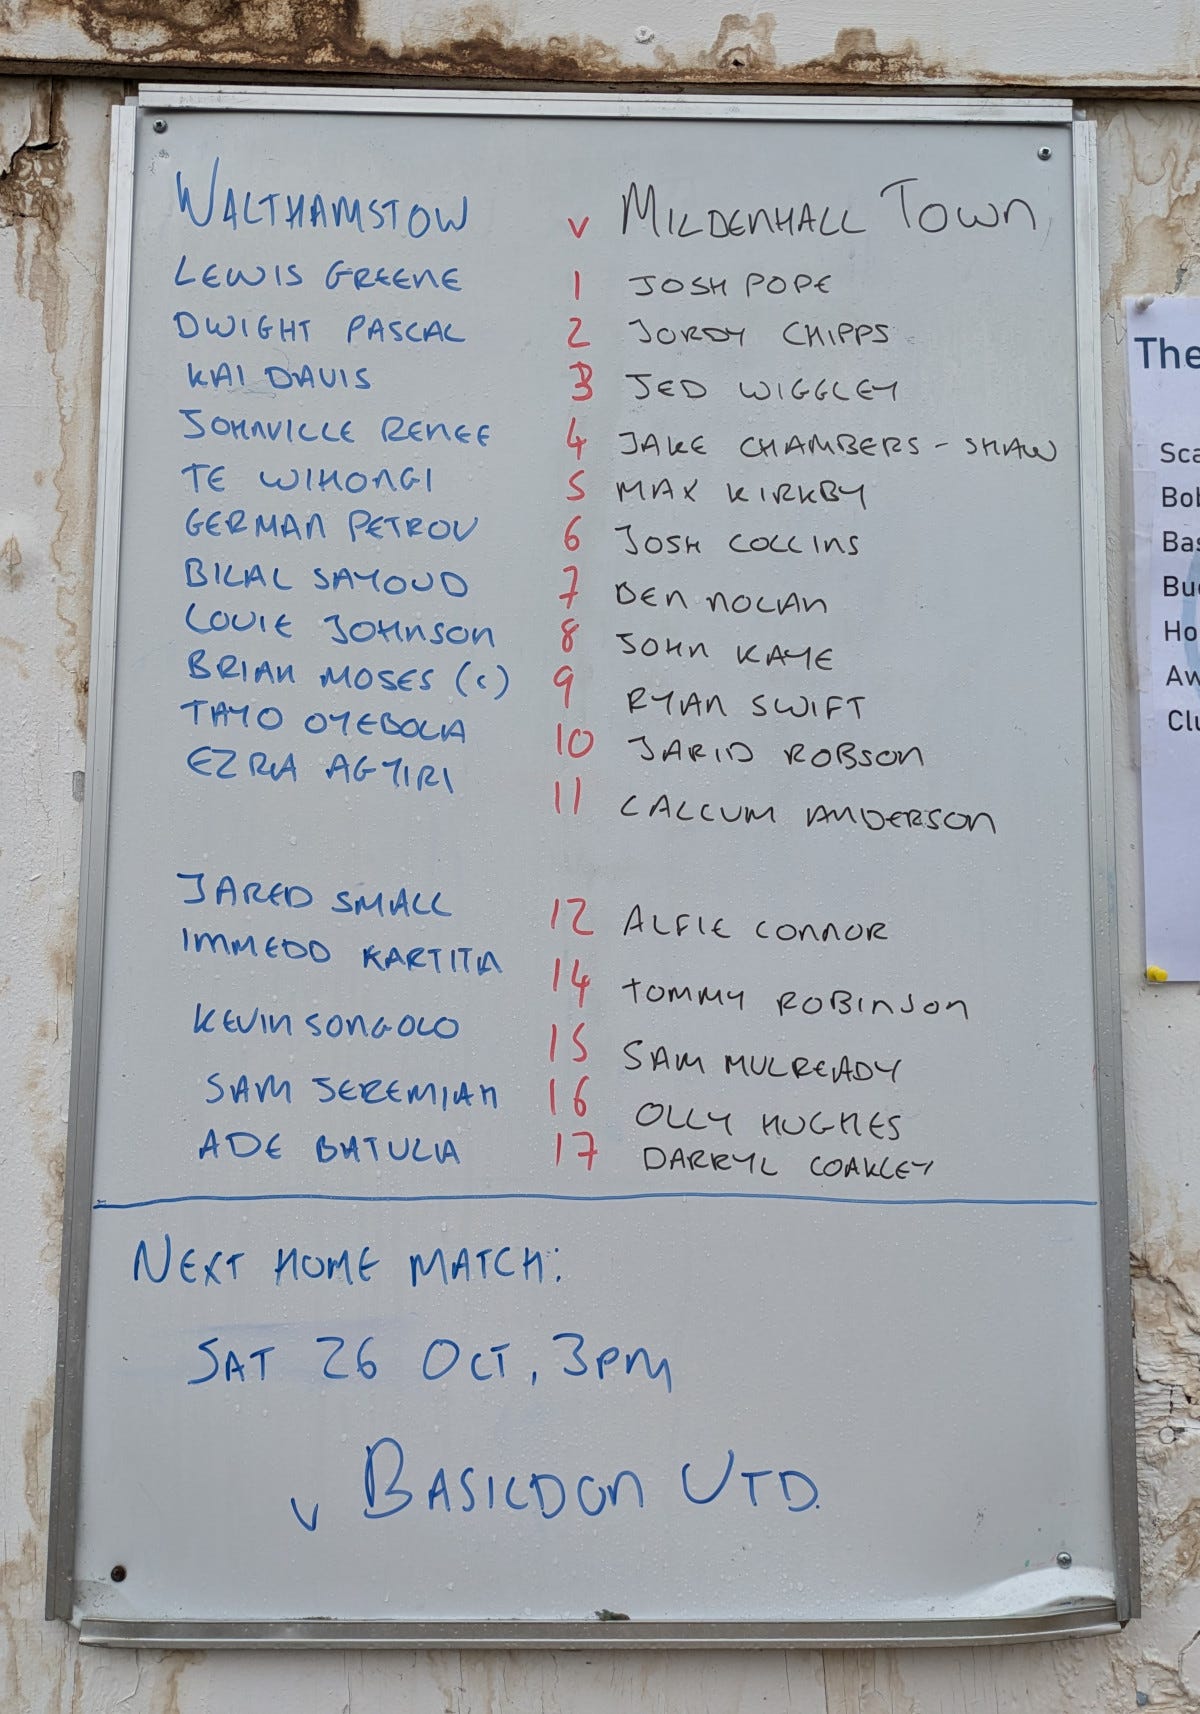 WALTHAMSTOW v MILDENHALL TOWN
LEWIS GREENE 1 JOSH POPE
DWIGHT PASCAL 2 JORDY CHIPPS
KAI DAVIS 3 JED WIGGLEY
JOHNVILLE RENEE 4 JAKE CHAMBERS-SHAW
TE WIHONGI 5 MAX KIRKBY
GERMAN PETROV 6 JOSH COLLINS
BILAL SAYOUD 7 BEN NOLAN
LOUIE JOHNSON 8 JOHN KAYE
BRIAN MOSES (c) 9 RYAN SWIFT
TAYO OYEBOLA 10 JARID ROBSON
EZRA AGYIRI 11 CALLUM ANDERSON
JARED SMALL 12 ALFIE CONNOR
IMMEDD KARTITA 14 TOMMY ROBINSON
KEVIN SONGOLO 15 SAM MULREADY
SAM JEREMIAH 16 OLLY HUGHES
ADE BATULA 17 DARRYL COAKLEY
NEXT HOME MATCH:
SAT 26 OCT, 3PM
v BASILDON UTD.
The